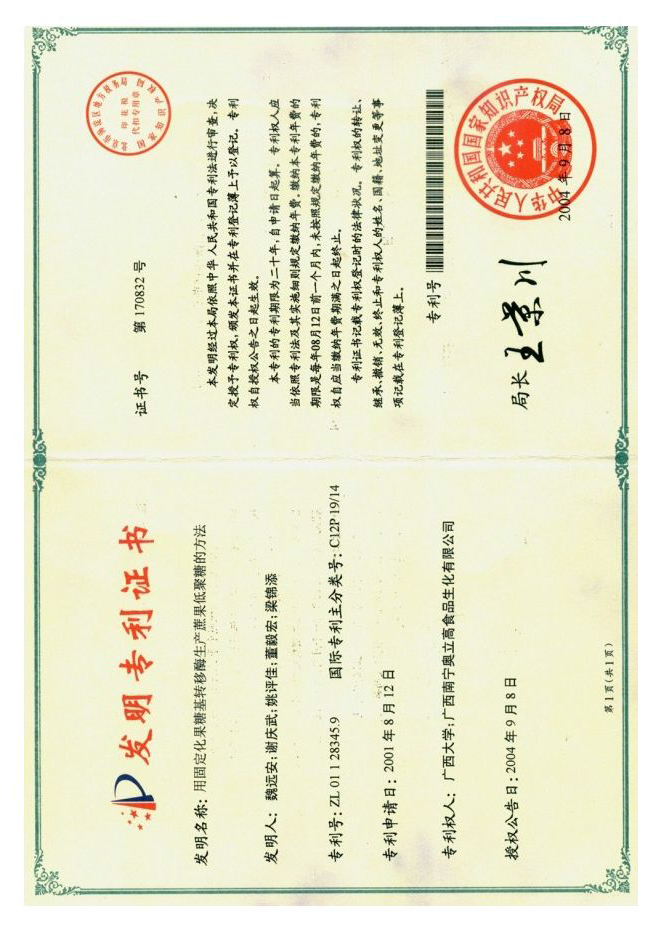 发明专利证书
发明名称：用固定化果糖基转移酶生产蔗果低聚糖的方法
发明人：魏远安;谢庆武;姚评佳;董毅宏;梁锦添
专利号：ZL 01 1 28345.9 国际专利主分类号：C12P 19/14
专利申请日：2001 年 8 月 12 日
专利权人：广西大学;广西南宁奥立高食品生化有限公司
授权公告日：2004 年 9 月 8 日
第 1 页(共 1 页)
证书号 第 170832 号
本发明经过本局依照中华人民共和国专利法进行审查，决
定授予专利权，颁发本证书并在专利登记簿上予以登记。专利
权自授权公告之日起生效。
本专利的专利期限为二十年，自申请日起算。专利权人应
当依照专利法及其实施细则规定缴纳年费。缴纳本专利年费的
期限是每年08月12日前一个月内，未按照规定缴纳年费的，专利
权自应当缴纳年费期满之日起终止。
专利证书记载专利权登记时的法律状况。专利权的转让、
继承、撤销、无效、终止和专利权人的姓名、国籍、地址变更等事
项记载在专利登记簿上。
专利号
局长 王景川
中华人民共和国国家知识产权局
2004 年 9 月 8 日
印花税
代扣专用章
国家知识产权局